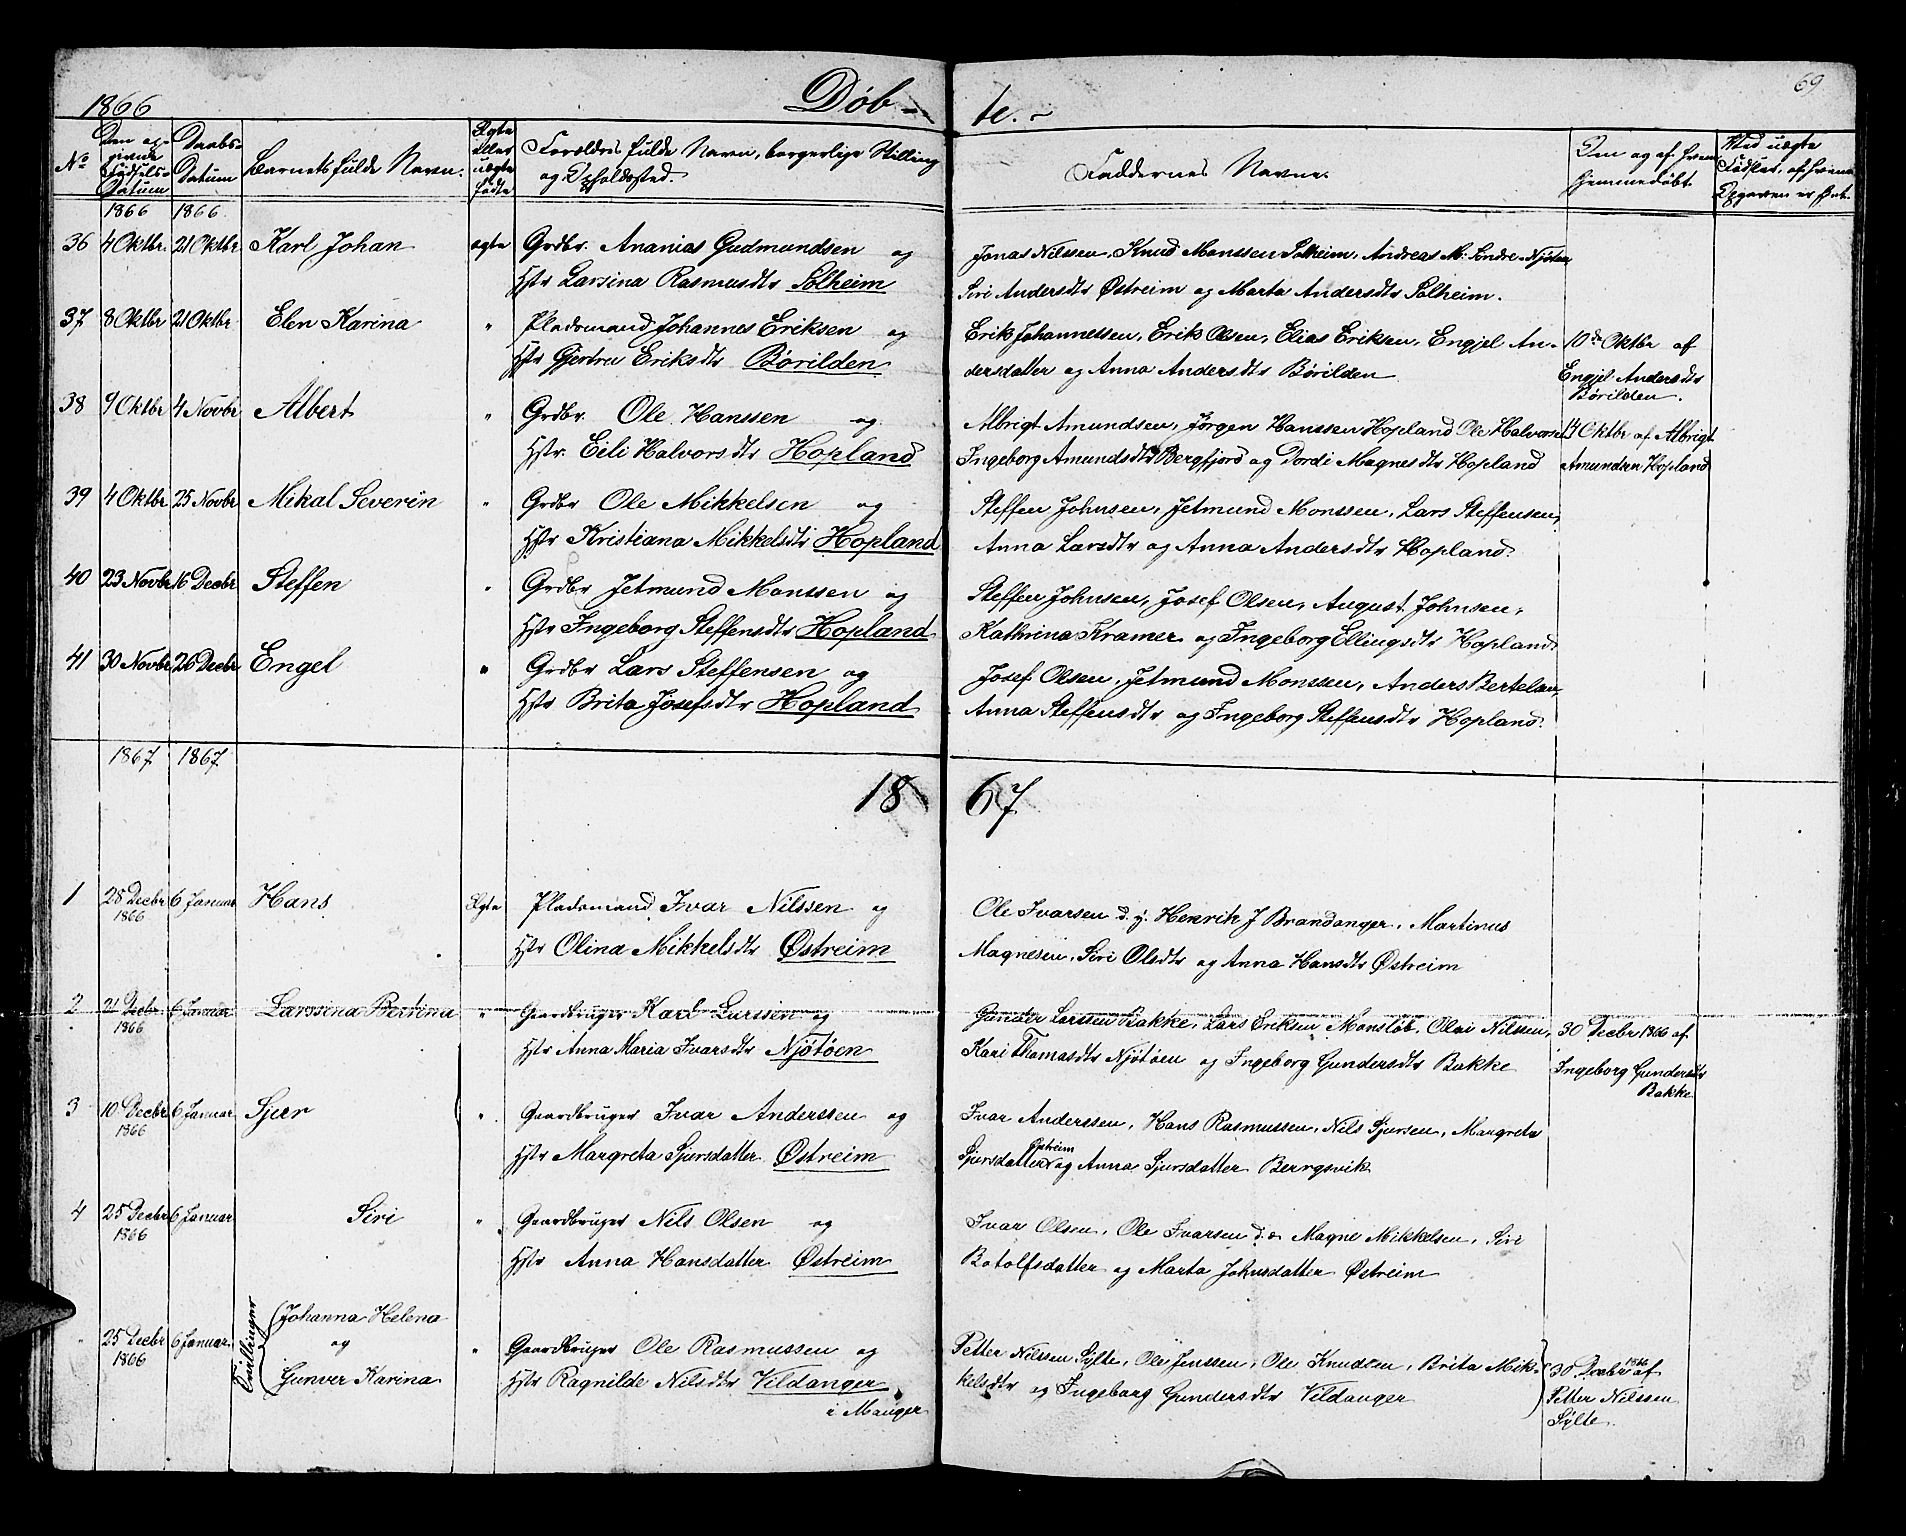 69
1866 Døbte.
No
Den angivne Fødsels-Datum
Daabs-Datum
Barnets fulde Navn.
Ægte eller uægte fødte
Forældres fulde Navn, borgerlige Stilling og Opholdssted.
Faddernes Navne.
Om og af hvem hjemmedøbt.
Ved uægte Fødsler, af hvem Opgaven er
1866 1866
36 4 Oktbr. 21 Oktbr. Karl Johan ægte Grdbr. Ananias Gudmundsen og Jonas Nilssen, Knud Monssen Solheim, Andreas M: Søndre-Njøten
Hstr Larsina Rasmusdtr Solheim Siri Andersdtr Østreim og Marta Andersdtr Solheim.
37 8 Oktbr 21 Oktbr Elen Karina " Pladsmand Johannes Eriksen og Erik Johannessen, Erik Olsen, Elias Eriksen, Engjel An- 10de Oktbr af
Hstr Gjertru Eriksdtr Børilden dersdatter og Anna Andersdtr Børilden Engjel Andersdtr
Børilden.
38 9 Oktbr 4 Novbr Albert " Grdbr. Ole Hanssen og Albrigt Amundsen, Jørgen Hanssen Hopland Ole Halvors Oktbr af Albrigt
Hstr. Eili Halvorsdtr Hopland Ingeborg Amundsdtr Bergfjord og Dordi Magnesdtr Hopland Amundsen Hopland
39 4 Oktbr 25 Novbr Mikal Severin " Grdbr Ole Mikkelsen og Steffen Johnsen, Jetmund Monssen, Lars Steffensen,
Hstr Kristiana Mikkelsdtr Hopland Anna Larsdtr og Anna Andersdtr Hopland.
40 23 Novbr 16 Decbr Steffen " Grdbr Jetmund Monssen og Steffen Johnsen, Josef Olsen, August Johnsen,
Hstr Ingeborg Steffensdtr Hopland Kathrina Kramer og Ingeborg Ellingsdtr Hopland.
41 30 Novbr 26 Decbr Engel " Grdbr Lars Steffensen og Josef Olsen, Jetmund Monssen, Anders Bertelsen,
Hstr Brita Josefsdtr Hopland Anna Steffensdtr og Ingeborg Steffensdtr Hopland.
1867. 1867.
1867
1 28 Decbr 6 Januar Hans Ægte Pladsmand Ivar Nilssen og Ole Ivarsen d. y. Henrik J Brandanger, Martinus
1866 Hstr Olina Mikkelsdtr Østreim Magnesen, Siri Olsdtr og Anna Hansdtr Østreim
2 21 Decbr 6 Januar Larssina Bertina " Gaardbruger Karl Larssen og Gunder Larssen Bakke, Lars Eriksen Monsløb, Olai Nilssen, 30 Decbr 1866 af
1866 Hstr Anna Maria Ivarsdtr Njøtøen Kari Thomasdtr Njøtøen og Ingeborg Gundersdtr Bakke Ingeborg Gundersdtr
Bakke
3 10 Decbr 6 Januar Sjur " Gaardbruger Ivar Anderssen og Ivar Anderssen, Hans Rasmussen, Nils Sjursen, Margreta
1866 Hstr Margreta Sjursdatter Østreim Sjursdatter Østreim og Anna Sjursdatter Bergsvik
4 25 Decbr 6 Januar Siri " Gaardbruger Nils Olsen og Ivar Olsen, Ole Ivarsen d. æ Magne Mikkelsen, Siri
1866 Hstr Anna Hansdatter Østreim Botolfsdatter og Marta Johnsdatter Østreim
Tvillinger Johanna Helena
" 25 Decbr 6 Januar. og " Gaardbruger Ole Rasmussen og Petter Nilssen Sylte, Ole Jenssen, Ole Knudsen, Brita Mik- 30 Decbr 1866 af
1866 Gunver Karina Hstr Ragnilde Nilsdtr Vildanger kelsdtr og Ingeborg Gundersdtr Vildanger Petter Nilssen
i Manger Sylte.